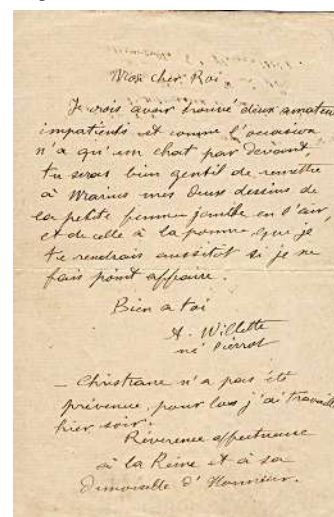 Mon cher Roi.
Je crois avoir trouvé deux amateu
impatients et comme l'occasion
n'a qu'un chat par devant,
tu seras bien gentil de remettre
à Marius mes deux dessins de
la petite femme jambe en l'air,
et de celle à la pomme que je
te rendrais aussitot si je ne
fais point affaire.
Bien a toi
A. Willette
né Pierrot
— Christiane n'a pas été
prévenue pour j'ai travail
hier soir.
Réverence affectueuse
à la Reine et à sa
Dimoiselle d'Honneur.